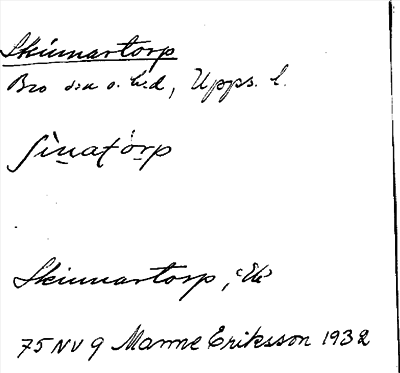 Skinnartorp
Bro sn o. hd, Upps. l.
Skinnartorp,
75 NV 9 Manne Eriksson 1932